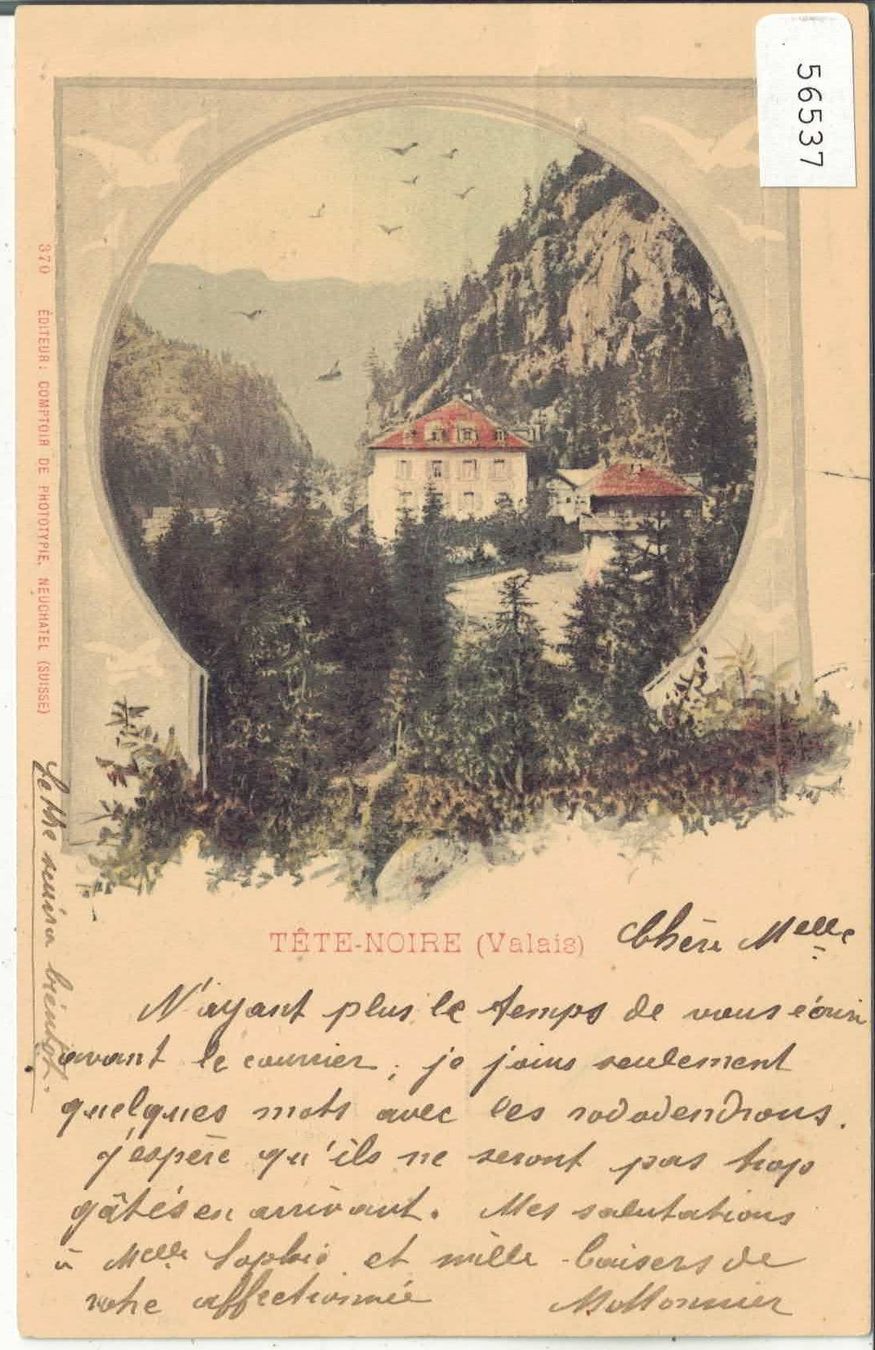 56537
370 ÉDITEUR: COMPTOIR DE PHOTOTYPIE, NEUCHATEL (SUISSE)
TÊTE-NOIRE (Valais)
Chère Melle
N'ayant plus le temps de vous écrire
avant le courrier, je joins seulement
quelques mots avec les rododendrons.
j'espère qu'ils ne seront pas trop
gâtés en arrivant. Mes salutations
à Melle Sophie et mille baisers de
votre affectionnée
Lettre suivra bientôt.